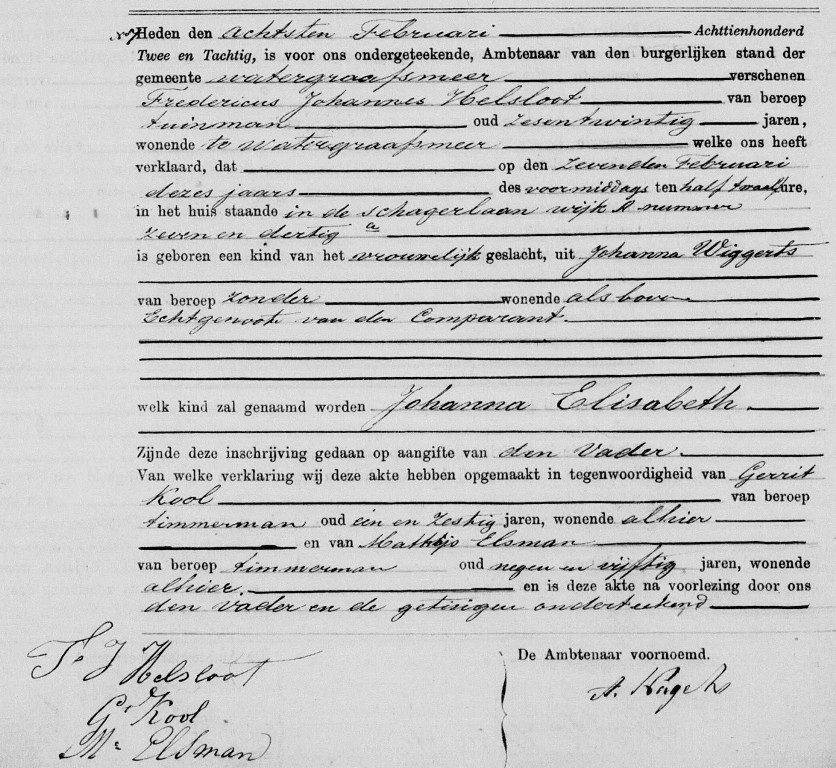 Heden den achtsten Februari Achttienhonderd
Twee en Tachtig, is voor ons ondergeteekende, Ambtenaar van den burgerlijken stand der
gemeente Watergraafsmeer verschenen
Fredericus Johannes Helsloot van beroep
tuinman oud zesentwintig jaren,
wonende te Watergraafsmeer welke ons heeft
verklaard, dat op den zevenden Februari
dezes jaars des voormiddags ten half twaalf ure,
in het huis staande in de schagerlaan wijk R nummer
zeven en dertig a
is geboren een kind van het vrouwelijk geslacht, uit Johanna Wiggerts
van beroep zonder wonende als boven
Echtgenoote van den Comparant.
welk kind zal genaamd worden Johanna Elisabeth.
Zijnde deze inschrijving gedaan op aangifte van den Vader.
Van welke verklaring wij deze akte hebben opgemaakt in tegenwoordigheid van Gerrit
Kool van beroep
timmerman oud een en zestig jaren, wonende alhier
en van Mathijs Elsman
van beroep timmerman oud negen en vijftig jaren, wonende
alhier. en is deze akte na voorlezing door ons
den Vader en de getuigen onderteekend
F. J Helsloot De Ambtenaar voornoemd.
G. Kool
M. Elsman